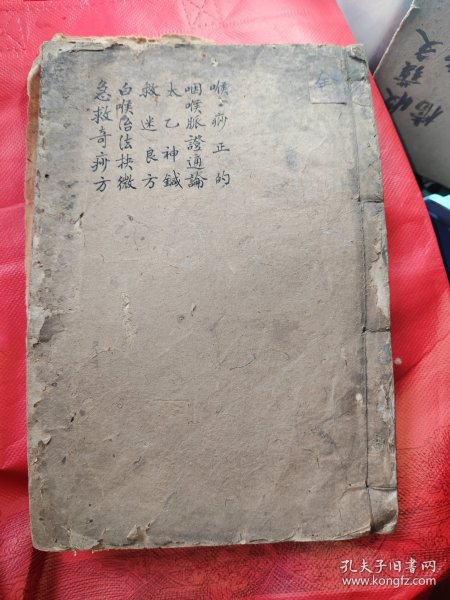 喉痧正的
咽喉脈證通論
太乙神鍼
救迷良方
白喉治法抉微
急救奇痧方
孔夫子旧书网
www.kongfz.com